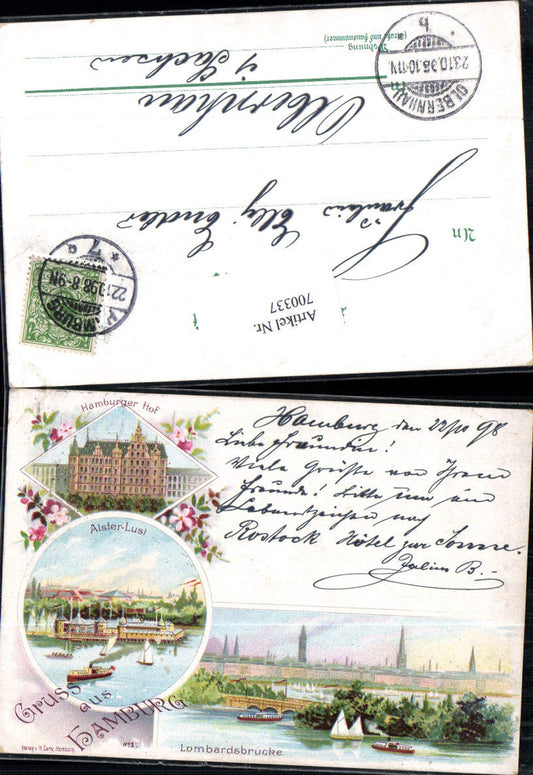 Wohnung
(Straße und Hausnummer)
i/ Sachsen
Olbernhau
Fräulein Elly Endler
An
Artikel Nr.
700337
OLBERNHAU
23.10.98.10-11V.
b
HAMBURG
22.10.98.8-9N
* 7 a
Hamburger Hof
Alster-Lust
Gruss
aus
HAMBURG
Verlag v. H. Carly, Hamburg.
Lombardsbrücke.
Hamburg den 22/10 98
Liebe Freundin!
Viele Grüße von Ihrem
Freunde! Bitte um ein
Lebenszeichen nach
Rostock Hôtel zur Sonne.
Julius B.-